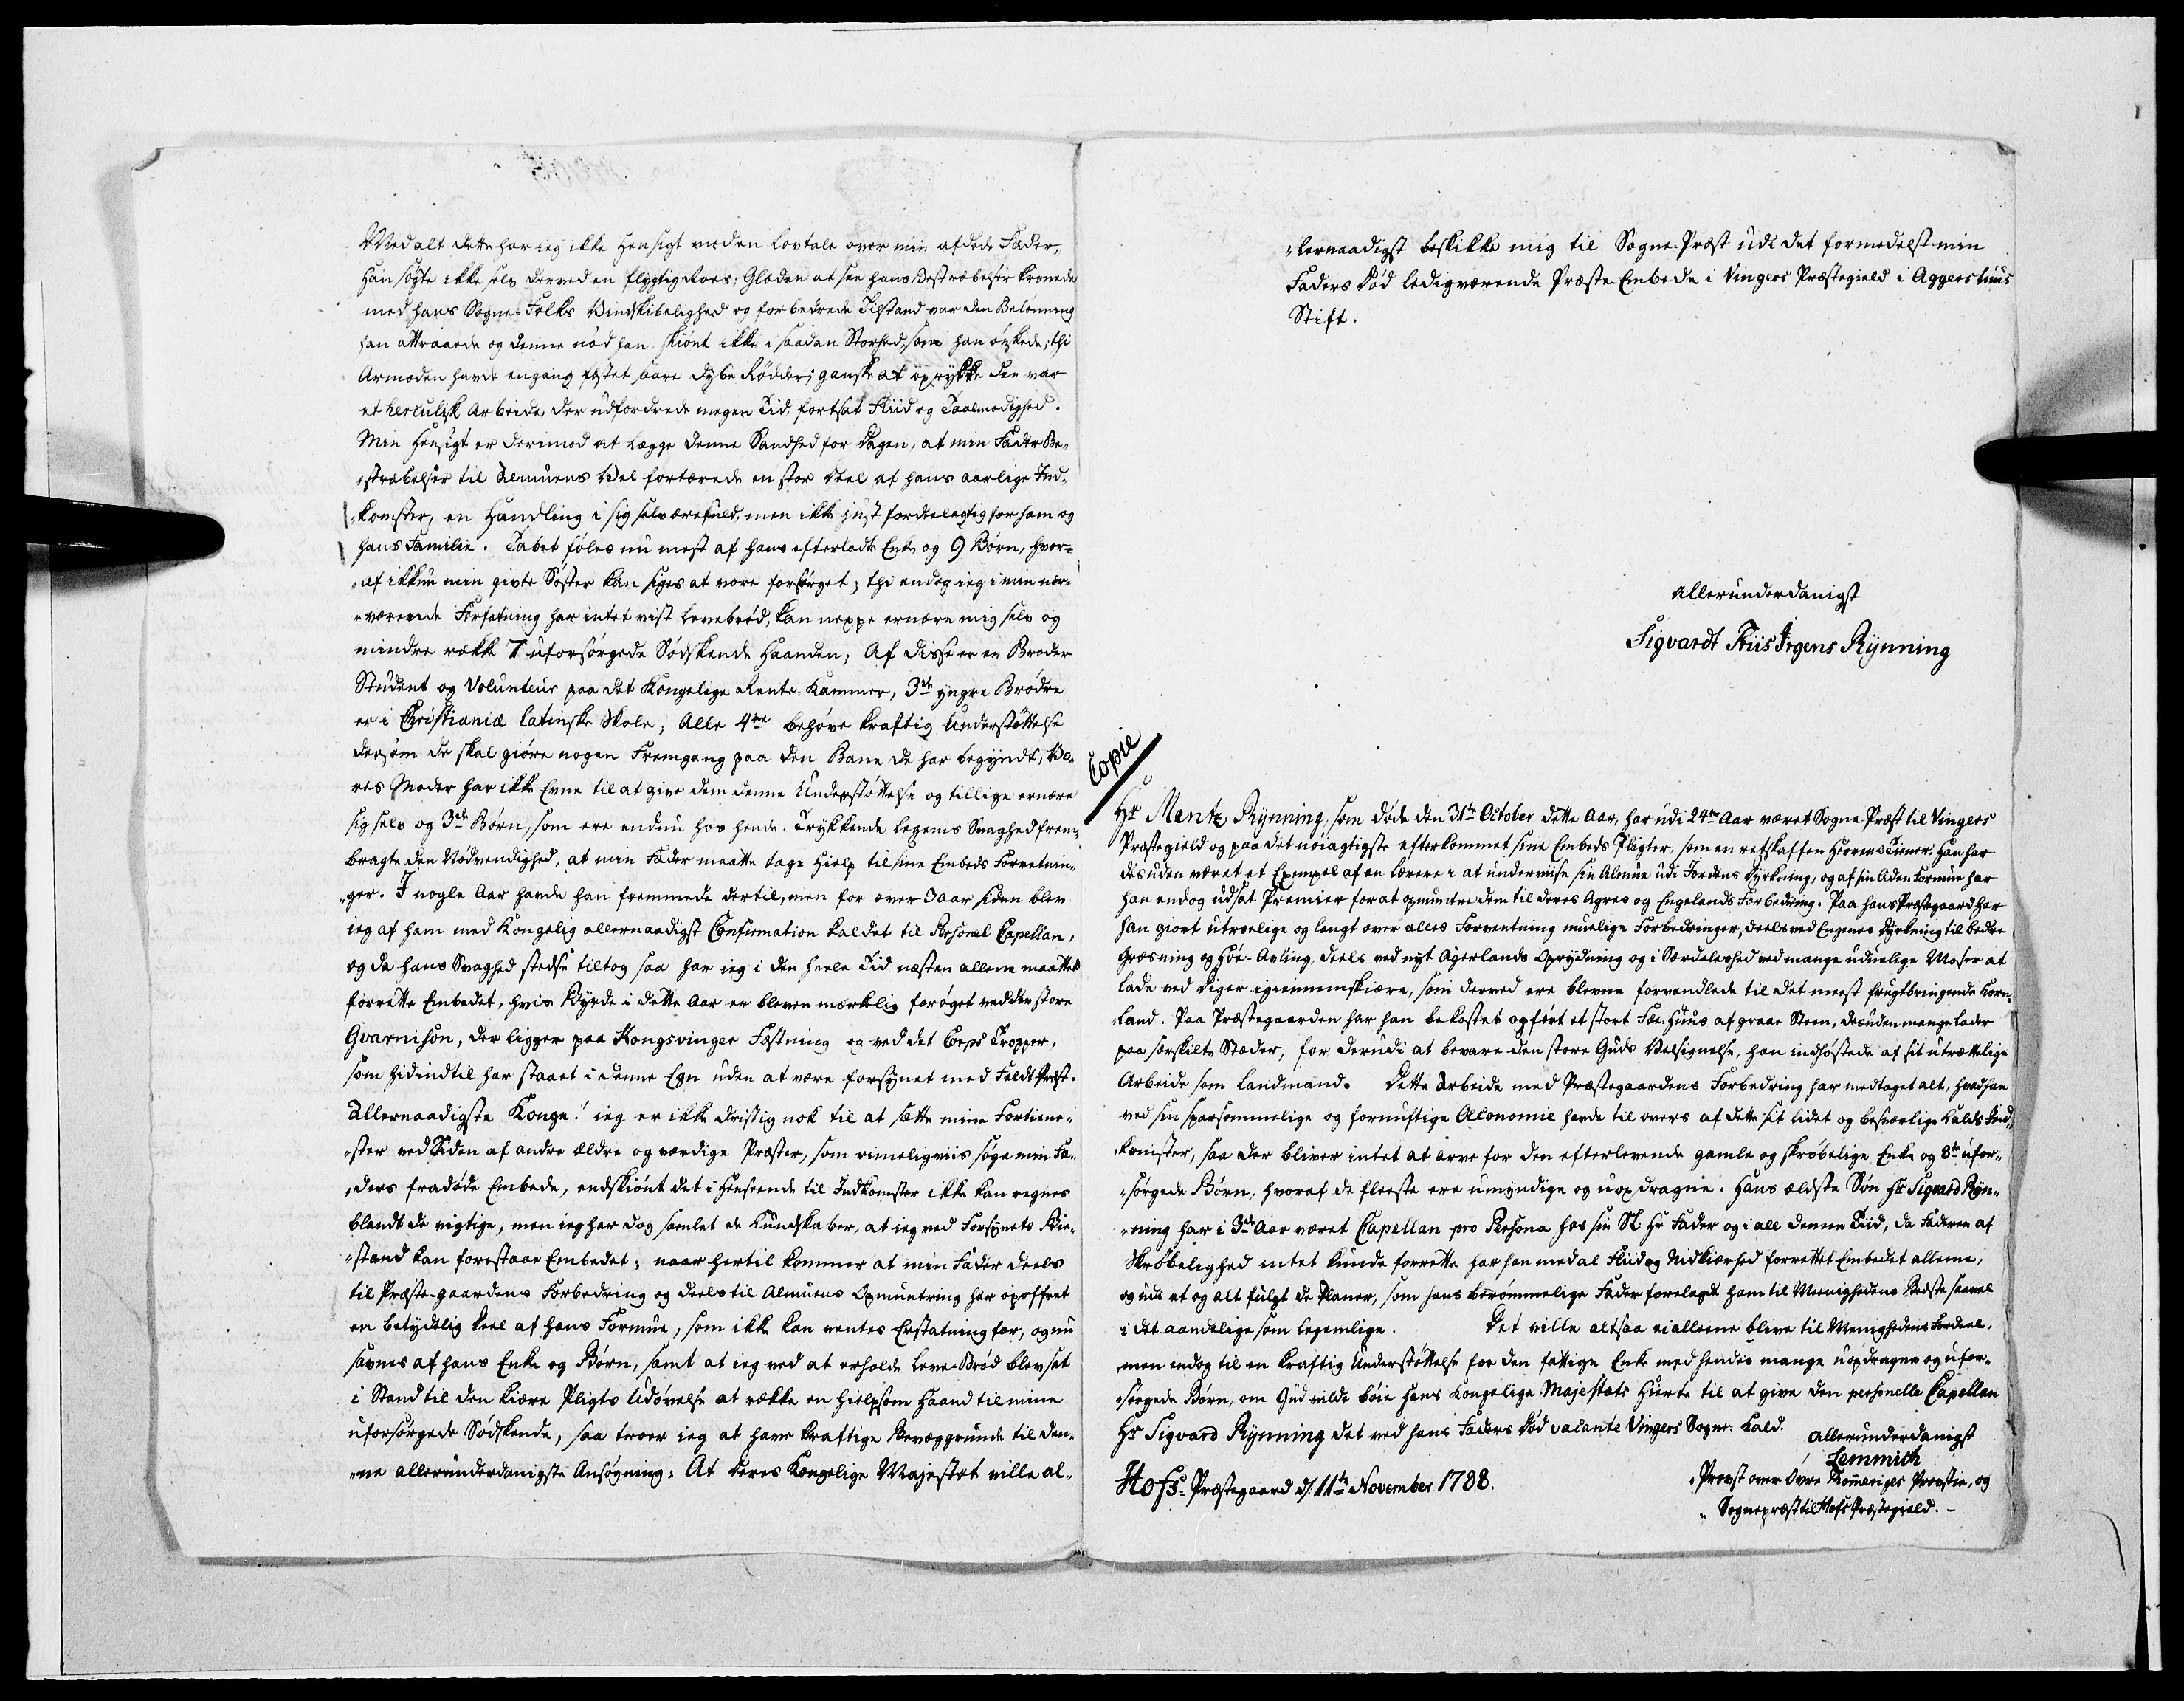 Med alt dette har ieg ikke Hensigt med en Lovtale over min afdøde Fader,
Han søgte ikke selv derved en flygtig Roes; Glæden at see hans Bestræbelser kronede
med hans Sogne-Folks Vindskibelighed og forbedrede Tilstand var den Belønning
han attraaede og denne nød han, skiønt ikke i saadan Storhed, som han ønskede; thi
Armoden havde engang fæstet saare dybe Rødder; ganske at oprykke den var
et herculisk Arbeide, der udfordrede megen Tid, fortsat Fliid og Taalmodighed.
Min Hensigt er derimod at lægge denne Sandhed for Dagen, at min Fader Be-
stræbelser til Almuens Vel fortærede en stor Deel af hans aarlige Ind-
komster, en Handling i sig selv ærefuld, men ikke just fordeelagtig for ham og
hans Familie. Tabet føles nu mest af hans efterladte Enke og 9 Børn, hvor-
af ikkun min givte Søster kan siges at være forsørget; thi endog ieg i min nær-
værende Forfatning har intet vist Levebrød, kan neppe ernære mig selv og
mindre række 7 uforsørgede Sødskende Haanden; Af disse er en Broder
Student og Volunteur paa det Kongelige Rente-Kammer, 3de yngre Brødre
er i Christianiæ latinske Skole; Alle 4re behøve kraftig Understøttelse
dersom de skal giøre nogen Fremgang paa den Bane de har begyndt, Vo-
res Moder har ikke Evne til at give dem denne Understøttelse og tillige ernære
sig selv og 3de Børn, som ere endnu hos hende. Trykkende Legems Svaghed frem-
bragte den Nødvendighed, at min Fader maatte tage Hielp til sine Embeds Forretnin-
ger. I nogle Aar havde han fremmede dertil, men for over 3 Aar siden blev
ieg af ham med Kongelig allernaadigst Confirmation kaldet til Personel Capellan,
og da hans Svaghed stedse tiltog saa har ieg i den heele Tid næsten allene maattet
forrette Embedet, hvis Byrde i dette Aar er bleven mærkelig forøget ved den store
Gvarnison, der ligger paa Kongsvinger Fæstning og ved det Corps Tropper,
som hidindtil har staaet i denne Egn uden at være forsynet med Feldt Præst.
Allernaadigste Konge! ieg er ikke dristig nok til at sætte mine Fortiene-
ster ved Siden af andre ældre og værdige Præster, som rimeligviis søge min Fa-
ders fradøde Embede, endskiønt det i Henseende til Indkomster ikke kan regnes
blandt de vigtige; men ieg har dog samlet de Kundskaber, at ieg ved Forsynets Bie-
stand kan forestaae Embedet; naar hertil kommer at min Fader deels
til Præste-gaardens Forbedring og deels til Almuens Opmuntring har opoffret
en betydelig Deel af hans Formue, som ikke kan ventes Erstatning for, og nu
savnes af hans Enke og Børn, samt at ieg ved at erholde Leve-Brød blev sat
i Stand til den kiære Pligts Udøvelse at række en hielpsom Haand til mine
uforsørgede Sødskende, saa troer ieg at have kraftige Bevæggrunde til den-
ne allerunderdanigste Ansøgning: At Deres Kongelige Majestæt ville al-
lernaadigst beskikke mig til Sogne-Præst udi det formedelst min
Faders Død ledigværende Præste-Embede i Vingers Præstegield i Aggershuus
Stift.
allerunderdanigst
Sigvardt Friis Irgens Rynning
Copie
Hr Mentz Rynning, som døde den 31te October dette Aar, har udi 24re Aar været Sogne-Præst til Vingers
Præstegield og paa det nøiagtigste efterkommet sine Embeds Pligter, som en retskaffen Herrens Tiener. Han har
desuden været et Exempel af en Lærere i at underviise sin Almue udi Jordens Dyrkning, og af sin liden Formue har
han endog udsat Premier for at opmuntre dem til deres Agres og Engelands Forbedring. Paa hans Præstegaard har
han giort utroelige og langt over alles Forventning muelige Forbedringer, deels ved Engenes Dyrkning til bedre
Græsning og Høe-Avling, deels ved nyt Agerlands Oprydning og i Særdeleshed ved mange uduelige Moser at
lade ved Diger igiennemskiære, som derved ere blevne forvandlede til det meest frugtbringende Korn-
Land. Paa Præstegaarden har han bekostet opført et stort Fæe-Huus af graae Steen, desuden mange Lader
paa særskilte Stæder, for derudi at bevare den store Guds Velsignelse, han indhøstede af sit utrættelige
Arbeide som Landmand. Dette Arbeide med Præstegaardens Forbedring har medtaget alt, hvad han
ved sin sparsommelige og fornuftige Oeconomie havde til overs af dette sit lidet og besværlige Kalds Ind-
komster, saa der bliver intet at arve for den efterlevende gamle og skrøbelige Enke og 8te ufor-
sørgede Børn, hvoraf de fleeste ere umyndige og uopdragne. Hans ældste Søn Hr Sigvard Ryn-
ning har i 3de Aar været Capellan pro Persona hos sin Sl. Hr Fader og i all denne Tiid, da Faderen af
Skrøbelighed intet kunde forrette har han med al Fliid og Nidkiærhed forrettet Embedet allene,
og udi et og alt fulgt de Planer, som hans berømmelige Fader forelagde ham til Meenighedens Bedste saavel
i det aandelige som legemlige. Det ville altsaa ei alleene blive til Menighedens Fordeel,
men endog til en kraftig Understøttelse for den fattige Enke med hendes mange uopdragne og ufor-
sørgede Børn, om Gud vilde bøie Hans Kongelige Majestæts Hierte til at give den personelle Capellan
Hr Sigvard Rynning det ved hans Faders Død vacante Vingers Sogne-Kald.
allerunderdanigst
Lemmich
Hofs-Præstegaard d: 11te November 1788.
Provst over Øvre Rommeriges Provstie, og
Sognepræst til Hofs Præstegield.